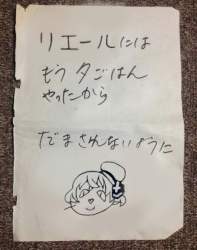 リエールには
もう夕ごはん
やったから
だまされないように